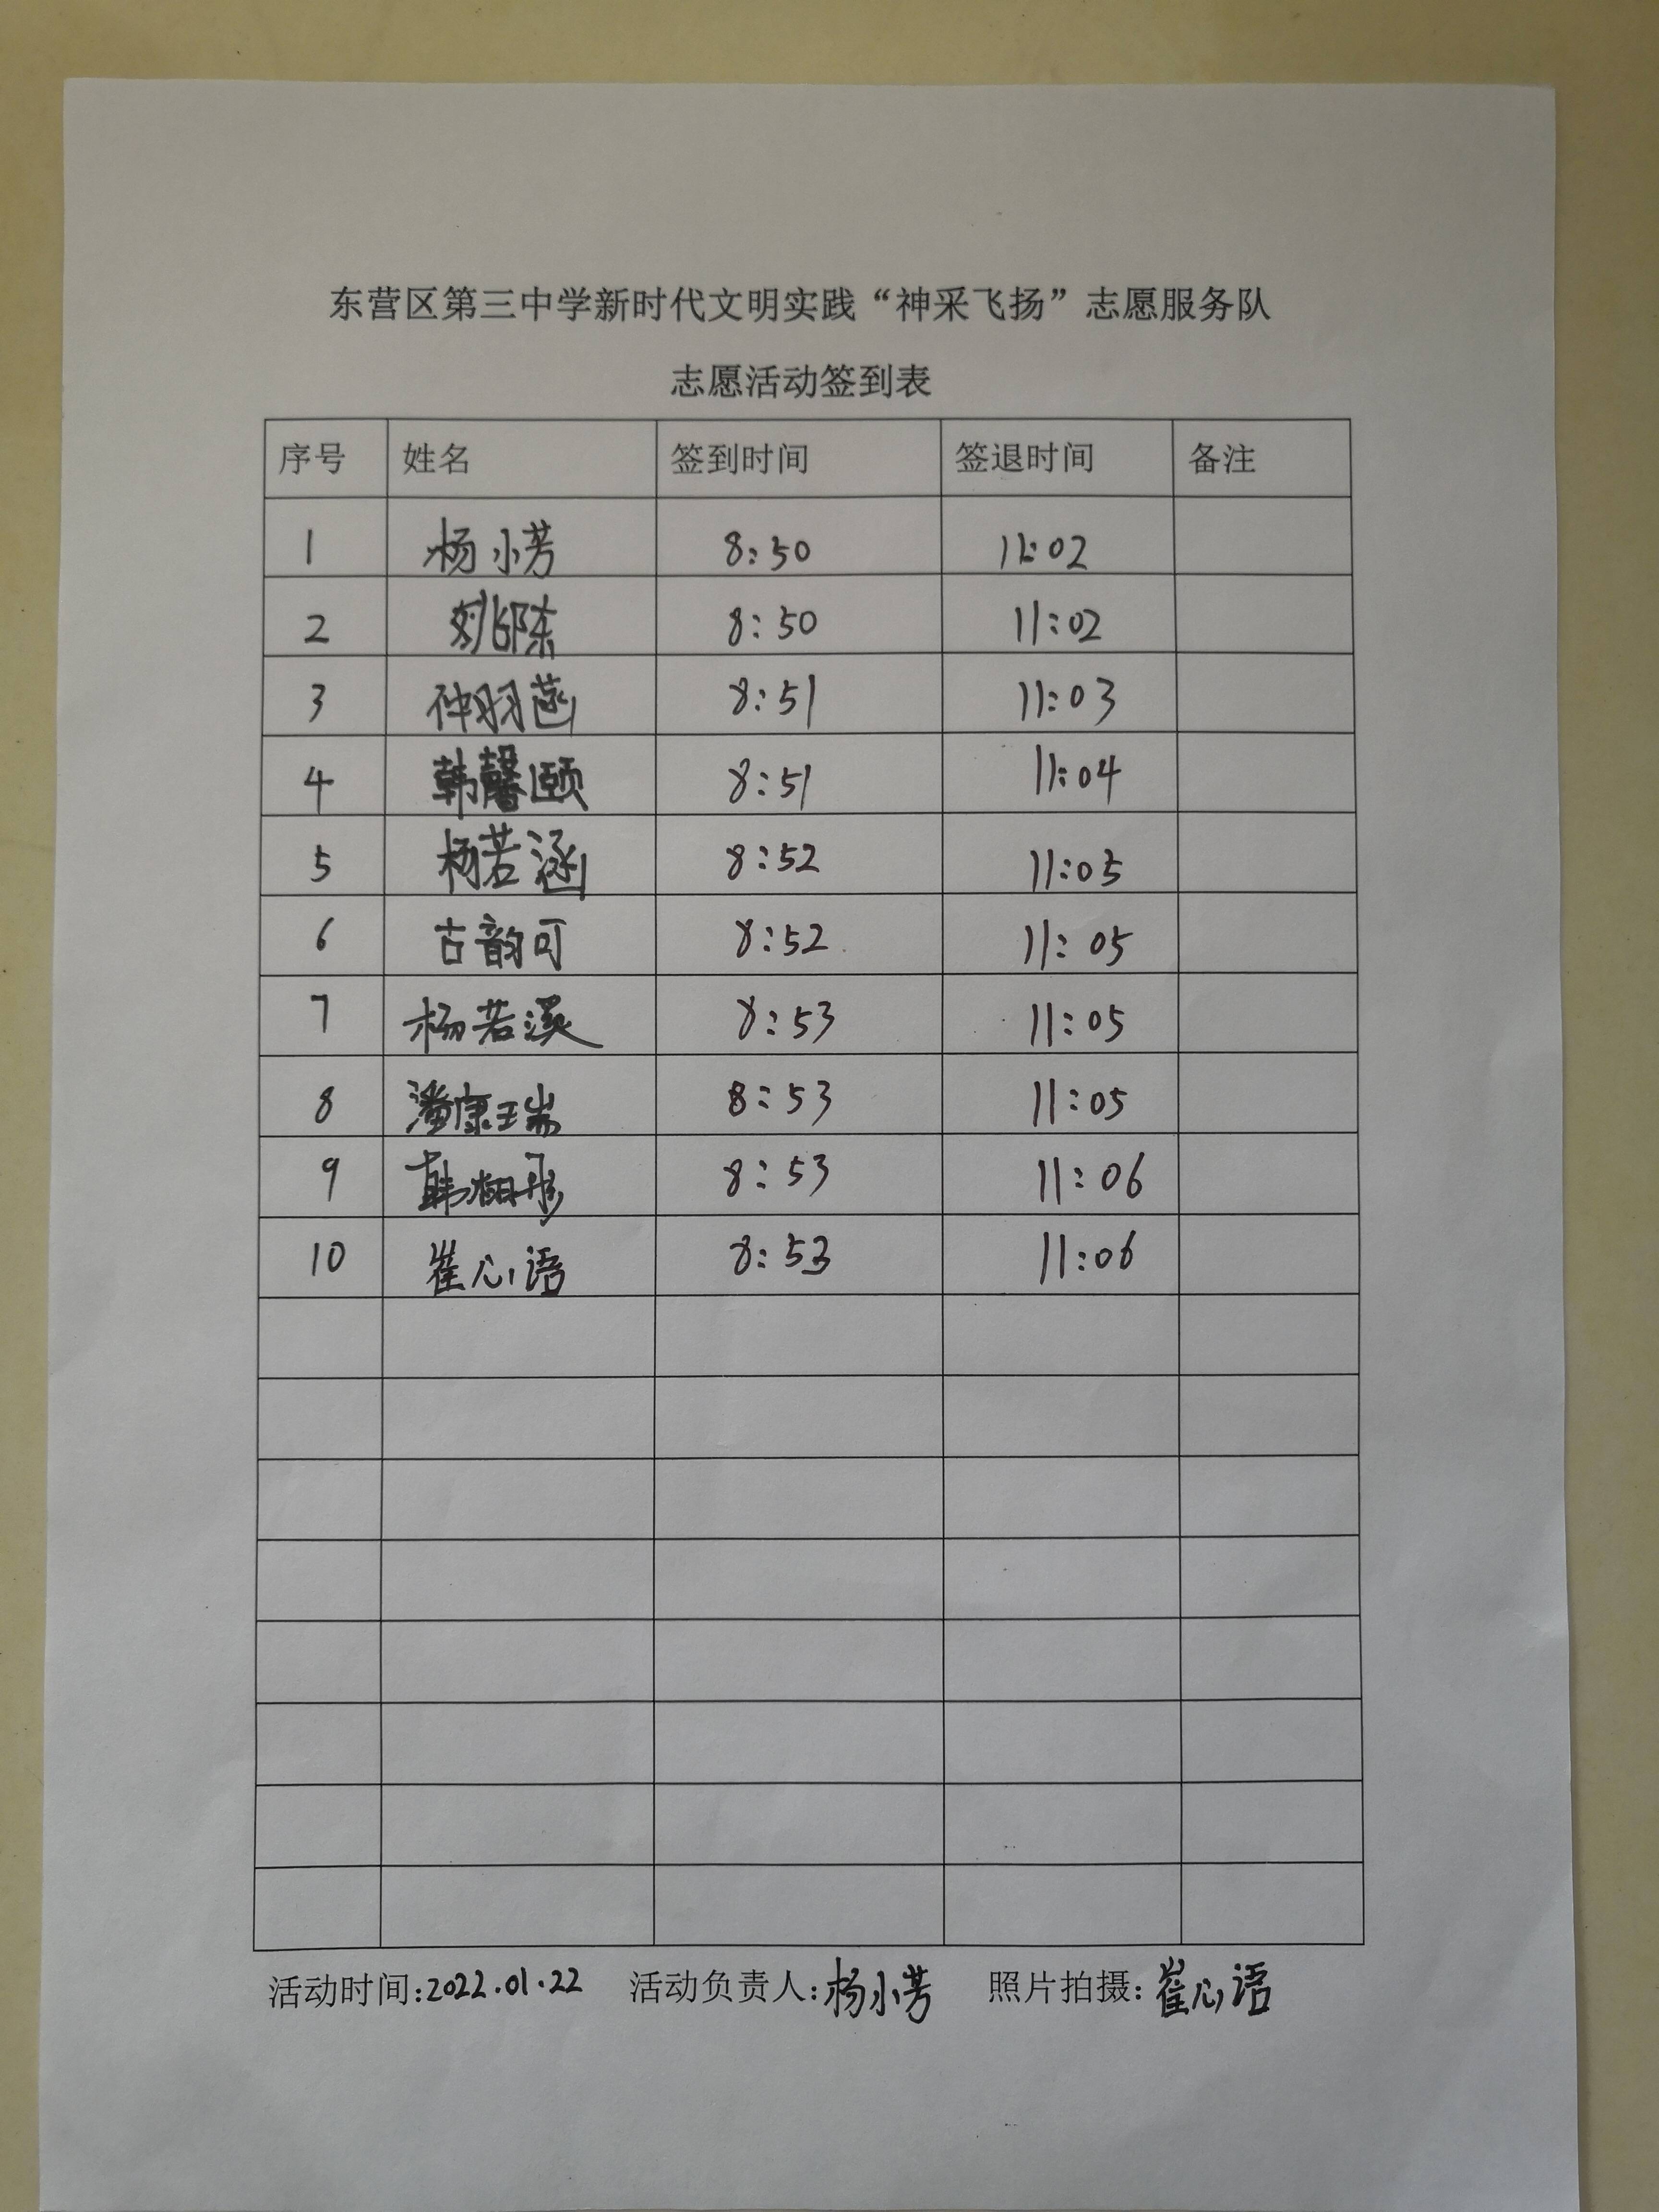 东营区第三中学新时代文明实践“神采飞扬”志愿服务队
志愿活动签到表
序号 姓名 签到时间 签退时间 备注
1 杨小芳 8:50 11:02
2 8:50 11:02
3 仲羽菡 8:51 11:03
4 韩馨颐 8:51 11:04
5 杨若涵 8:52 11:05
6 古韵可 8:52 11:05
7 杨若溪 8:53 11:05
8 潘康瑞 8:53 11:05
9 韩 8:53 11:06
10 崔心语 8:53 11:06
活动时间:2022.01.22 活动负责人:杨小芳 照片拍摄:崔心语